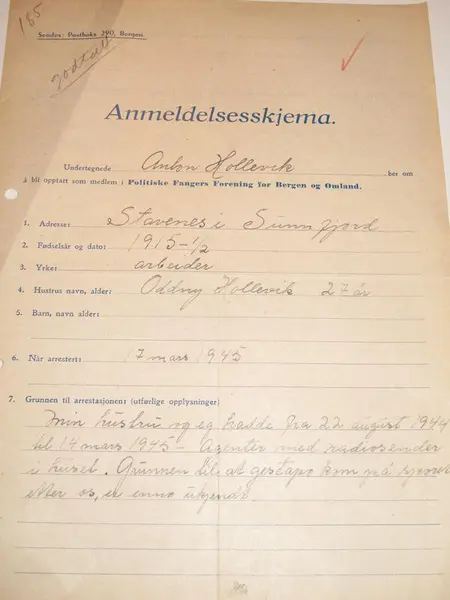 185
Sendes: Postboks 290, Bergen.
godtatt
Anmeldelsesskjema.
Undertegnede Anton Hollevik ber om
å bli opptatt som medlem i Politiske Fangers Forening for Bergen og Omland.
1. Adresse: Stavenes i Sunnfjord
2. Fødselsår og dato: 1915-1/2
3. Yrke: arbeider
4. Hustrus navn, alder: Oddny Hollevik 27 år
5. Barn, navn alder:
6. Når arrestert: 17 mars 1945
7. Grunnen til arrestasjonen: (utførlige opplysninger)
Min hustru og eg hadde fra 22 august 1944
til 14 mars 1945 - Agenter med radiosender
i huset. Grunnen til at gestapo kom på sporet
etter os, er enno ukjendt.